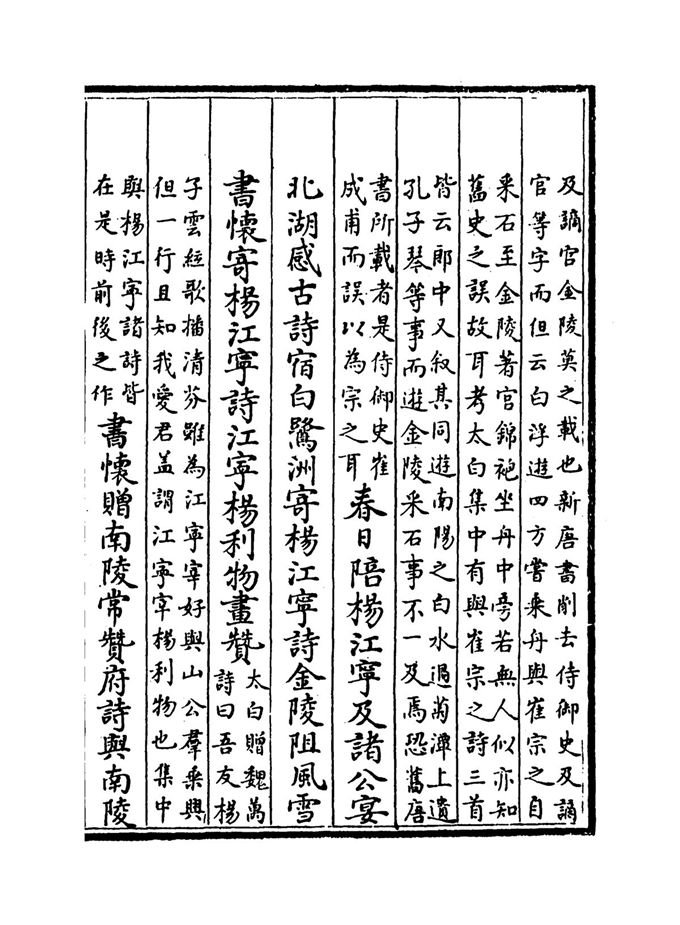 及謫官金陵莫之載也新唐書削去侍御史及謫
官等字而但云白浮遊四方嘗乘舟與崔宗之自
采石至金陵著官錦袍坐舟中旁若無人似亦知
舊史之誤故耳考太白集中有與崔宗之詩三首
皆云郎中又叙其同遊南陽之白水過菊潭上遺
孔子琴等事而遊金陵采石事不一及焉恐舊唐
書所載者是侍御史崔
成甫而誤以為宗之耳
春日陪楊江寧及諸公宴
北湖感古詩宿白鷺洲寄楊江寧詩金陵阻風雪
書懷寄楊江寧詩江寧楊利物畫贊
太白贈魏萬
詩曰吾友楊
子雲絃歌播清芬雖為江寧宰好與山公羣乘興
但一行且知我愛君盖謂江寧宰楊利物也集中
與楊江寧諸詩皆
在是時前後之作
書懷贈南陵常贊府詩與南陵